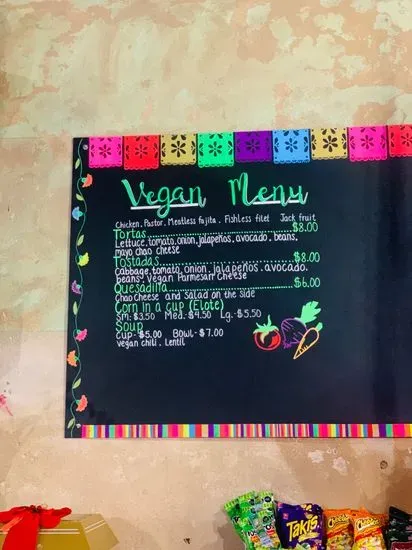 Vegan Menu
Chicken, Pastor, Meatless fajita, Fishless filet Jack fruit
Tortas $8.00
Lettuce, tomato, onion, jalapeños, avocado, beans,
mayo chao cheese
Tostadas $8.00
Cabbage, tomato, onion, jalapeños, avocado,
beans, Vegan Parmesan Cheese
Quesadilla $6.00
Chao Cheese and Salad on the side
Corn in a cup (Elote)
Sm: $3.50 Med: $4.50 Lg: $5.50
Soup
Cup - $5.00 Bowl - $7.00
Vegan chili, Lentil
Takis
Cheetos
Cheetos